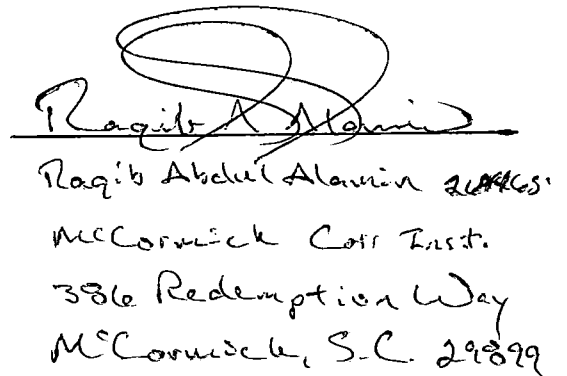 Raqib A Alamin
Raqib Abdul Alamin
McCormick Corr Inst.
386 Redemption Way
McCormick, S.C. 29899